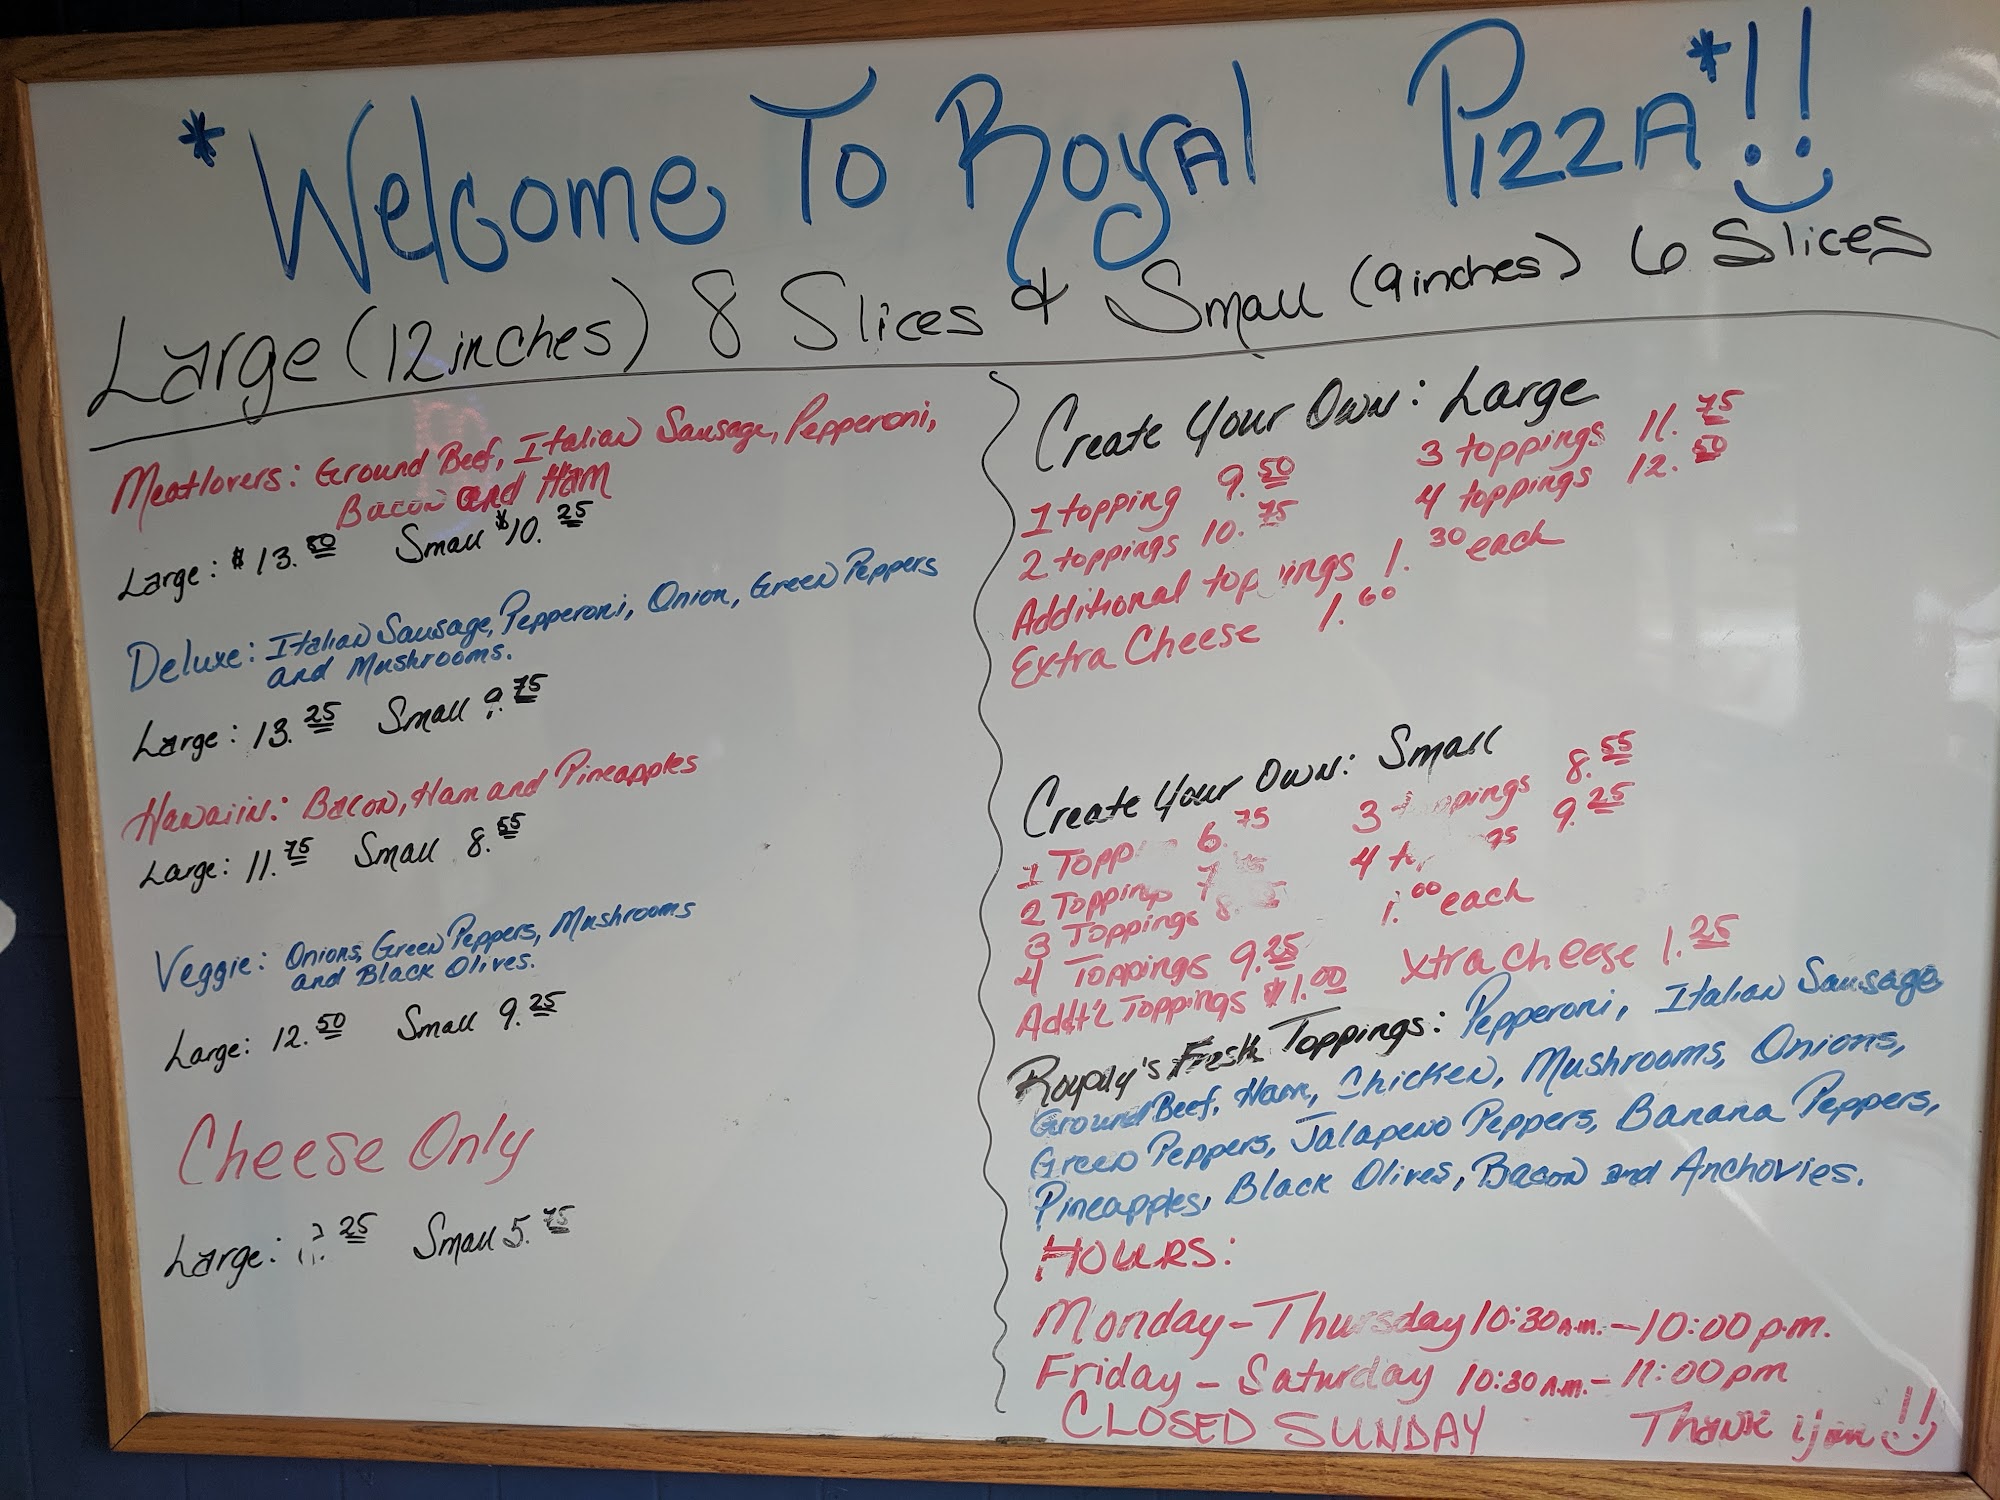 *Welcome To Royal Pizza*!!
Large (12 inches) 8 Slices & Small (9 inches) 6 Slices
Meatlovers: Ground Beef, Italian Sausage, Pepperoni,
Bacon and Ham
Large: $13.50 Small $10.25
Deluxe: Italian Sausage, Pepperoni, Onion, Green Peppers
and Mushrooms.
Large: 13.25 Small 9.75
Hawaiin: Bacon, Ham and Pineapples
Large: 11.75 Small 8.55
Veggie: Onions, Green Peppers, Mushrooms
and Black Olives.
Large: 12.50 Small 9.25
Cheese Only
Large: Small 5.75
Create Your Own: Large
1 topping 9.50 3 toppings 11.75
2 toppings 10.75 4 toppings 12.50
Additional toppings 1.30 each
Extra Cheese 1.60
Create Your Own: Small
1 Topp 6.75 3 toppings 8.55
2 Toppings 4 9.25
3 Toppings 1.00 each
4 Toppings 9.25
Addt'l Toppings $1.00 Xtra Cheese 1.25
Fresh Toppings: Pepperoni, Italian Sausage
Ground Beef, Ham, Chicken, Mushrooms, Onions,
Green Peppers, Jalapeno Peppers, Banana Peppers,
Pineapples, Black Olives, Bacon and Anchovies.
HOURS:
Monday - Thursday 10:30 A.M. - 10:00 p.m.
Friday - Saturday 10:30 A.M. - 11:00 pm
CLOSED SUNDAY Thank You!!